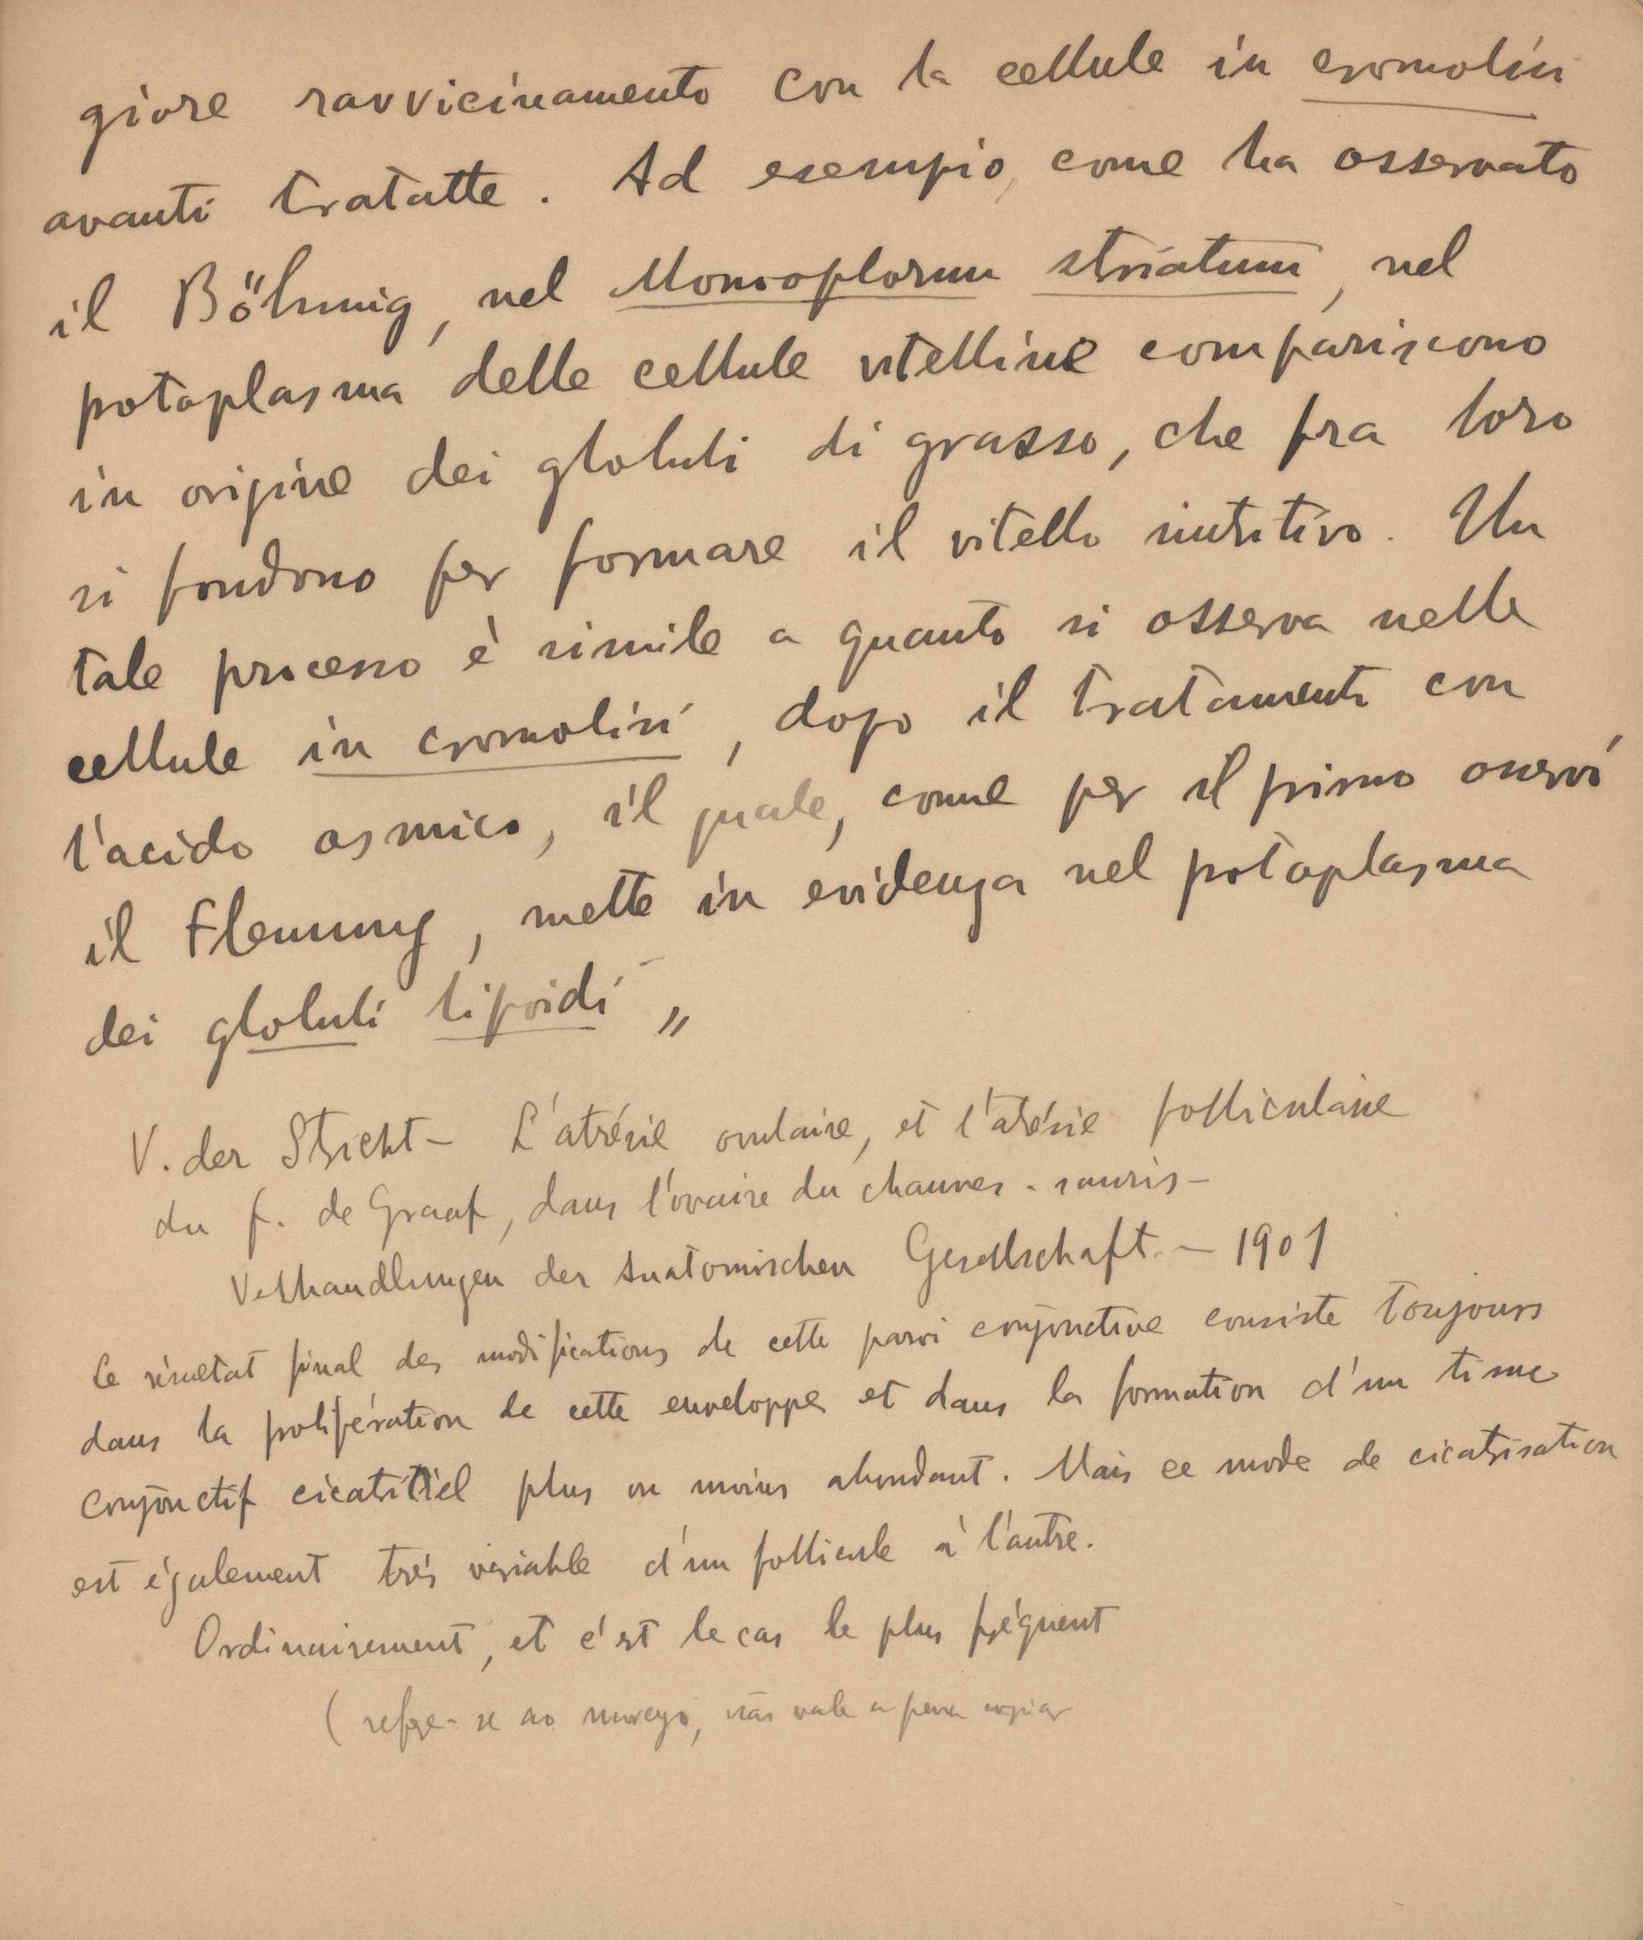 giore ravvicinamento con la cellule in cromolisi
avanti tratatte. Ad esempio, come ha osservato
il Böhmig, nel Monooplorum striatum, nel
potoplasma delle cellule vitelline compariscono
in origine dei globuli di grasso, che fra loro
si fondono per formare il vitello nutritivo. Un
tale processo è simile a quanto si osserva nelle
cellule in cromolisi, dopo il tratamento con
l'acido osmico, il quale, come per il primo osservó
il Flemming, mette in evidenza nel potoplasma
dei globuli lipoidi „
V. der Stricht – L'atrésie ovulaire, et l'atrésie folliculaire
du f. de Graaf, dans l'ovaire du chauves-souris –
Verhandlungen der Anatomischen Gesellschaft. – 1901
Le résultat final des modifications de cette paroi conjonctive consiste toujours
dans la prolifération de cette enveloppe et dans la formation d'un tissue
conjonctif cicatritiel plus ou moins abondant. Mais ce mode de cicatrisation
est également trés variable d'un follicule à l'autre.
Ordinairement, et c'est le cas le plus fréquent
(refre-se ao morcego, não vale a pena copiar